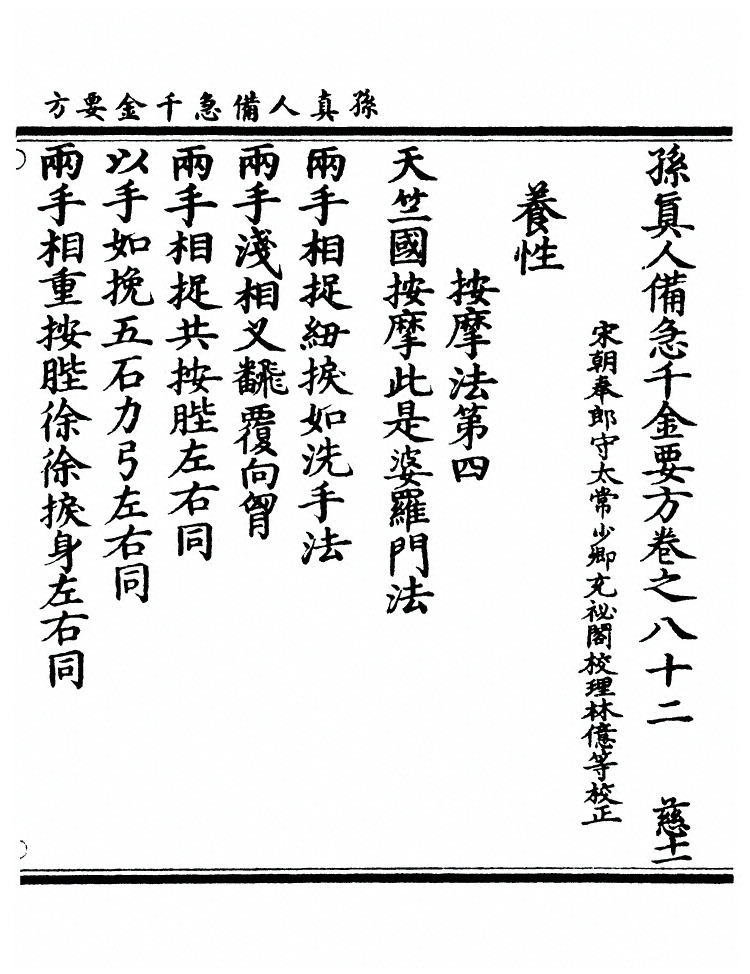 孫真人備急千金要方
孫眞人備急千金要方卷之八十二 慈十一
宋朝奉郎守太常少卿充祕閣校理林億等校正
養性
按摩法第四
天竺國按摩此是婆羅門法
兩手相捉紐捩如洗手法
兩手淺相叉飜覆向胷
兩手相捉共按䏶左右同
以手如挽五石力弓左右同
兩手相重按䏶徐徐捩身左右同